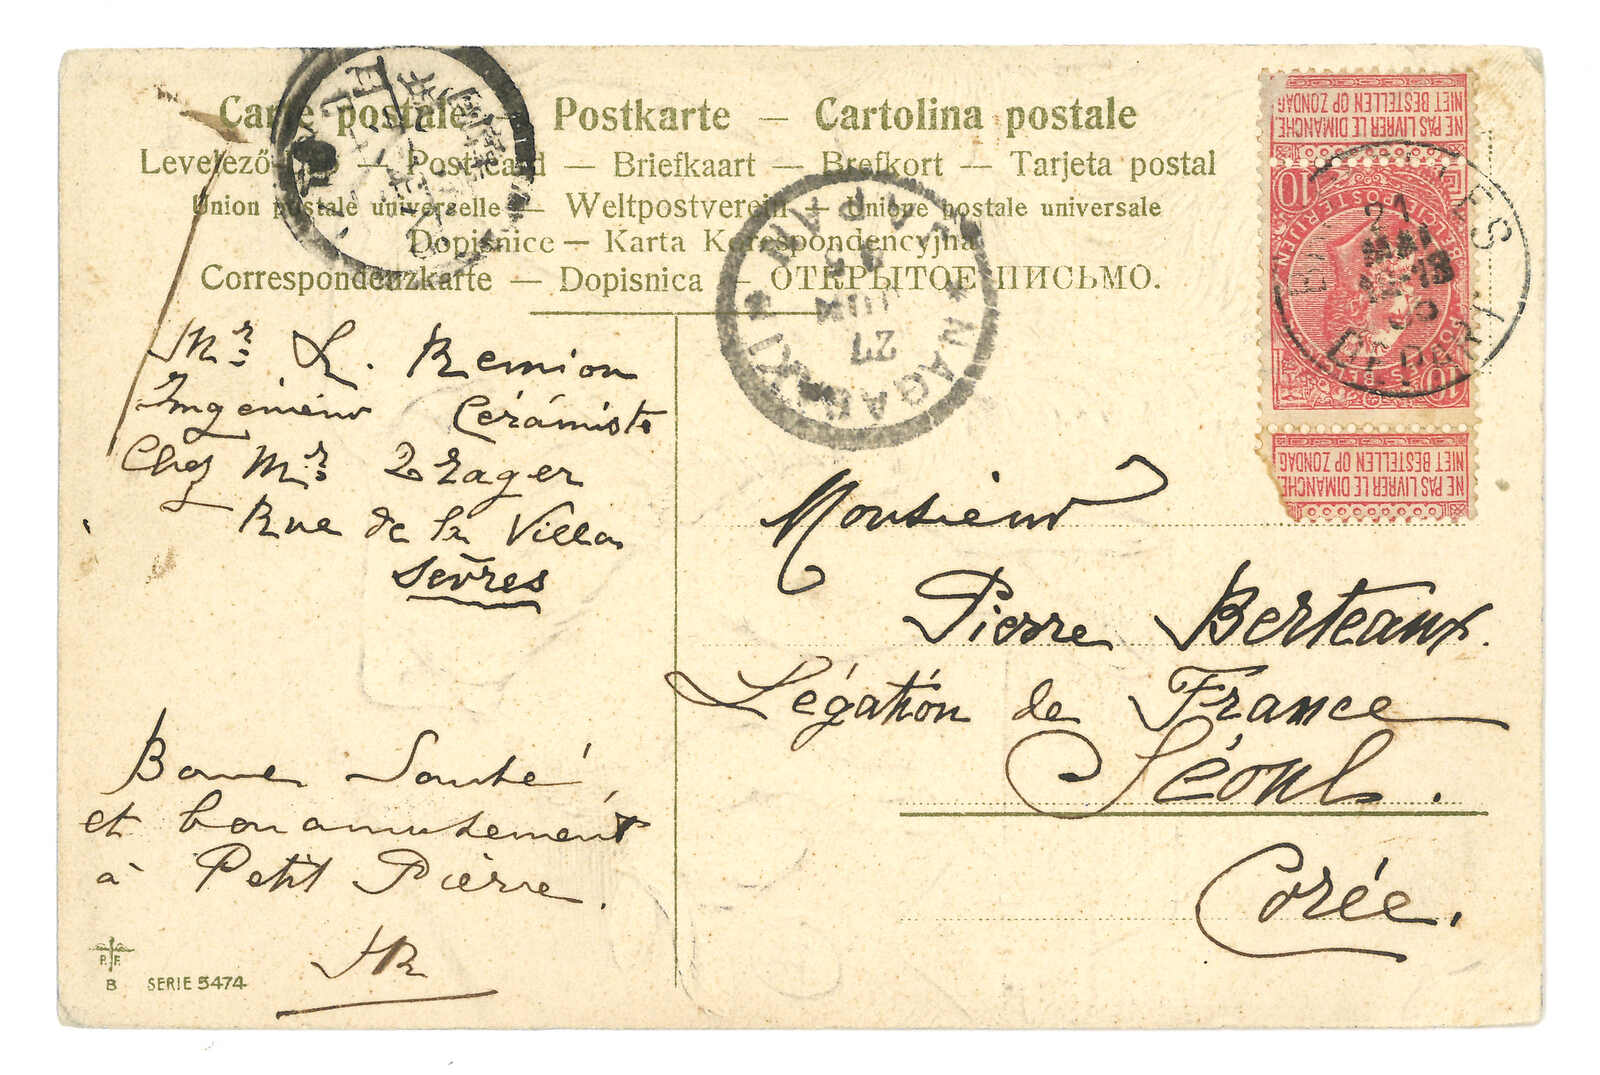 Carte postale — Postkarte — Cartolina postale
— Postcard — Briefkaart — Brefkort — Tarjeta postal
Union postale universelle — Weltpostverein — Unione postale universale
Dopisnice — Karta Korespondencyjna
Correspondenzkarte — Dopisnica — ОТКРЫТОЕ ПИСЬМО.
NE PAS LIVRER LE DIMANCHE
NIET BESTELLEN OP ZONDAG
10
10
21
MAI
DEPART
NE PAS LIVRER LE DIMANCHE
NIET BESTELLEN OP ZONDAG
NAGASAKI
27
JUIN
JAPAN
Mr L. Remion
Ingénieur Céramiste
Chez Mr
Rue de la Villa
Sèvres
Bonne Santé,
et bon amusement
à Petit Pierre.
HR
P.F.
B SERIE 5474
Monsieur
Pierre Berteaux.
Légation de France
Séoul.
Corée.